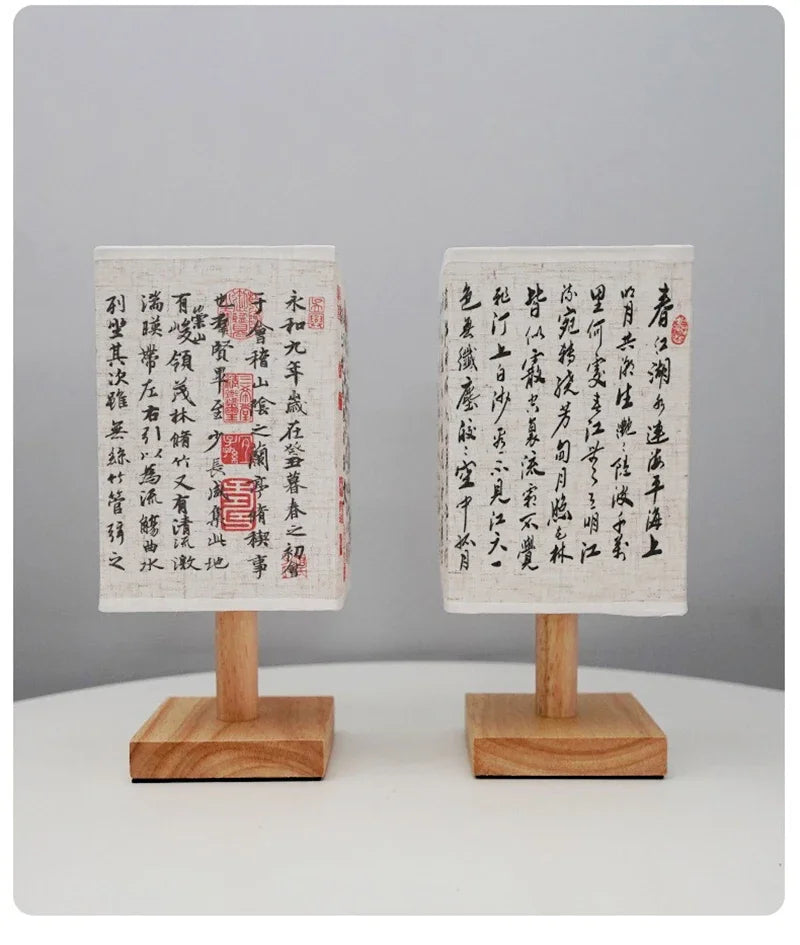 永和九年歲在癸丑暮春之初會
于會稽山陰之蘭亭脩禊事
也羣賢畢至少長咸集此地
有崇山峻領茂林脩竹又有清流激
湍暎帶左右引以為流觴曲水
列坐其次雖無絲竹管弦之
三希堂精鑑璽
宜子孫
春江潮水連海平海上
明月共潮生灩〻隨波千萬
里何處春江無月明江
流宛轉繞芳甸月照花林
皆似霰空裏流霜不覺
飛汀上白沙看不見江天一
色無纖塵皎〻空中孤月